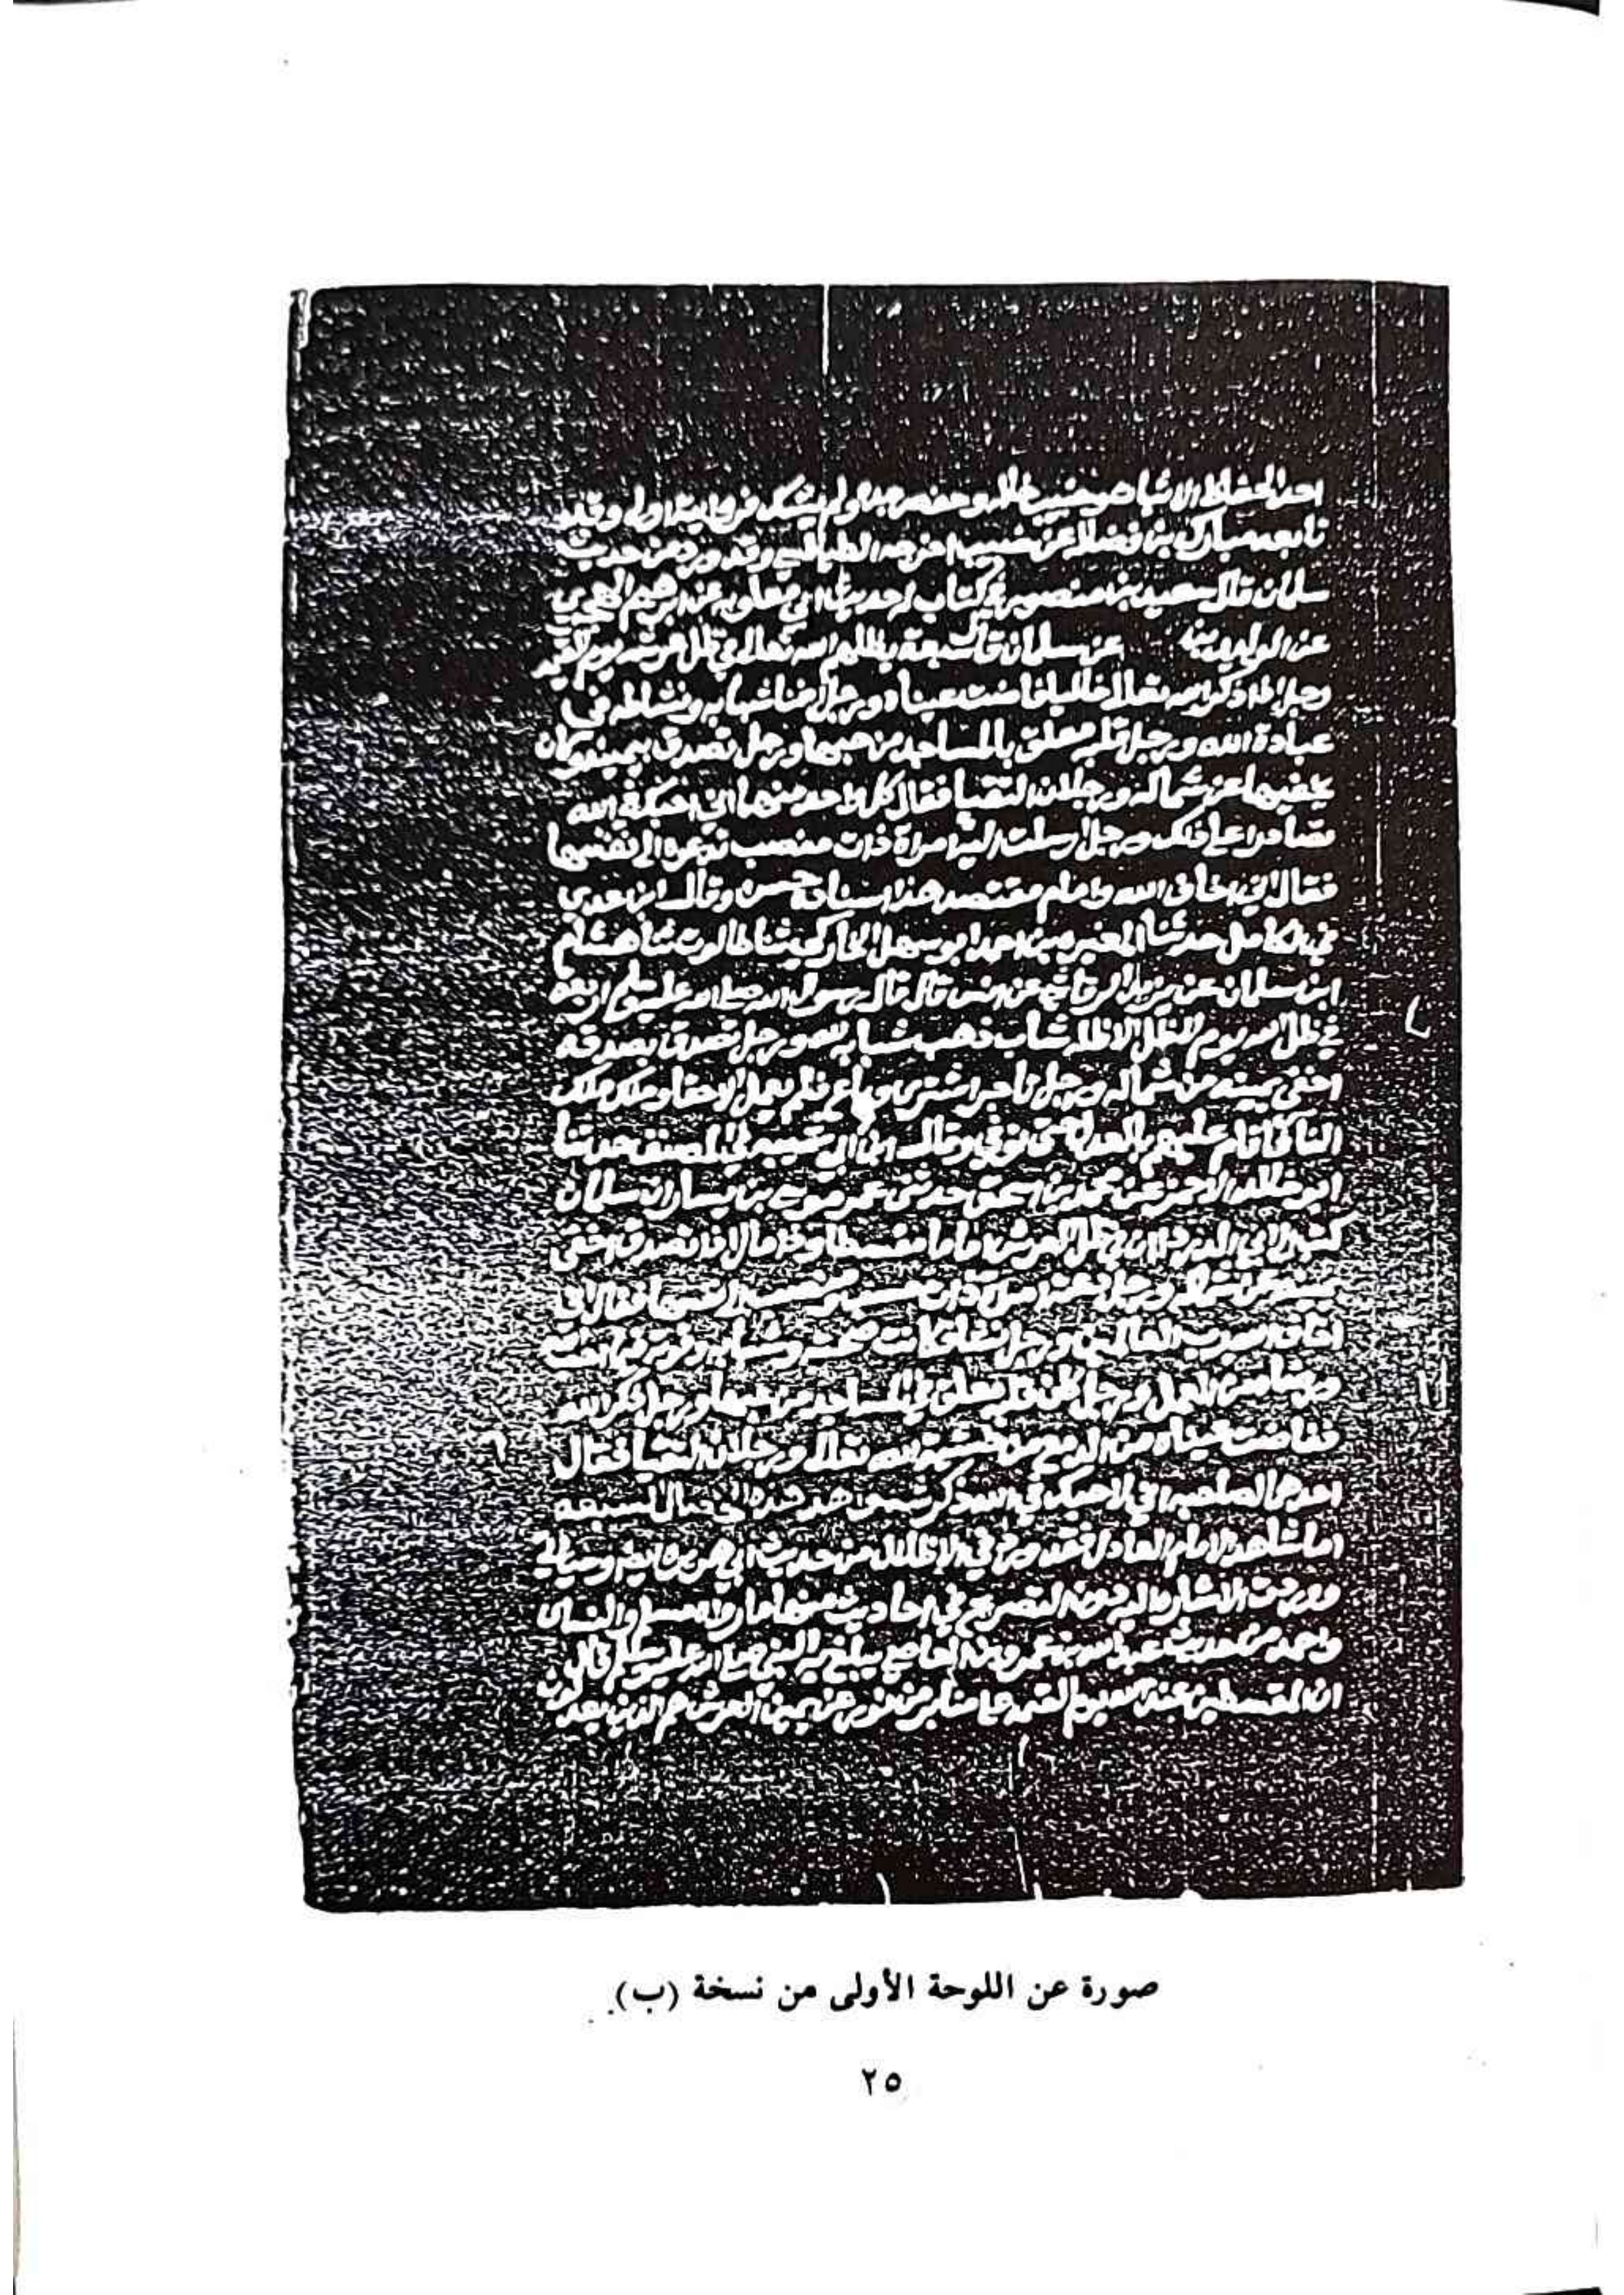 احد الحفاظ الاثبات وخبيب خاله وحفص جده ولم يشك فروايته اولى وقد
تابعه مبارك بن فضالة عن خبيب اخرجه الطيالسي وقد ورد من حديث
سلمان قال سعيد بن منصور في كتاب حدثنا ابو معاويه عن ابرهيم الهجري
عن الوليد بن عن سلمان قال سبعة يظلهم الله تعالى في ظل عرشه يوم
ورجل اذا ذكر الله تعالى خاليا فاضت عيناه ورجل افنا شبابه ونشاطه في
عبادة الله ورجل قلبه معلق بالمساجد من حبها ورجل تصدق بيمينه وكان
يخفيها عن شماله ورجلان التقيا فقال كل واحد منهما اني احبك في الله
تصادرا على ذلك ورجل ارسلت اليه امراة ذات منصب تدعوه الى نفسها
فقال اني اخاف الله وامام مقتصد هذا اسناده حسن وقال ابن عدي
في الكامل حدثنا المغيره بن احمد ابو سهل الخاركي ثنا طالوت ثنا هشام
ابن سلمان عن يزيد الرقاشي عن انس قال قال رسول الله صلى الله عليه وسلم اربعة
في ظل الله يوم لا ظل الا ظله شاب ذهب شبابه لله ورجل تصدق بصدقه
اخفى يمينه من شماله ورجل تاجر اشترى وباع فلم يعمل الا حقا وملك ملك
الناس فاقام عليهم بالعدل حتى توفي وقال ابن ابي شيبه في المصنف حدثنا
ابو خالد الاحمر عن محمد بن اسحق حدثني عمي موسى بن يسار ان سلمان
كتب الى ابي الدرداء ان في ظل العرش اماما مقسطا وذا مال اذا تصدق اخفى
يمينه عن شماله ورجل دعته امراة ذات حسب ومنصب الى نفسها فقال اني
اخاف الله رب العالمين ورجل نشا فكانت صحبته وشبابه وقوته فيما يحب
ويرضى من العمل ورجل كان قلبه معلق في المساجد من حبها ورجل ذكر الله
ففاضت عيناه من الدمع من خشية الله تعالى ورجلان التقيا فقال
احدهما لصاحبه اني لاحبك في الله ذكر شواهد هذه الخصال السبعه
اما شاهد الامام العادل فقد ورد في الاظلال من حديث ابي هريره ايضا وسياتي
ووردت الاشارة اليه دون التصريح في احاديث منها ما رواه مسلم والنساى
واحمد من حديث عبد الله بن عمرو بن العاصي يبلغ به النبي صلى الله عليه وسلم قال
ان المقسطين عند الله يوم القيمة على منابر من نور عن يمين العرش هم الذين يعدلون
صورة عن اللوحة الأولى من نسخة (ب).
٢٥